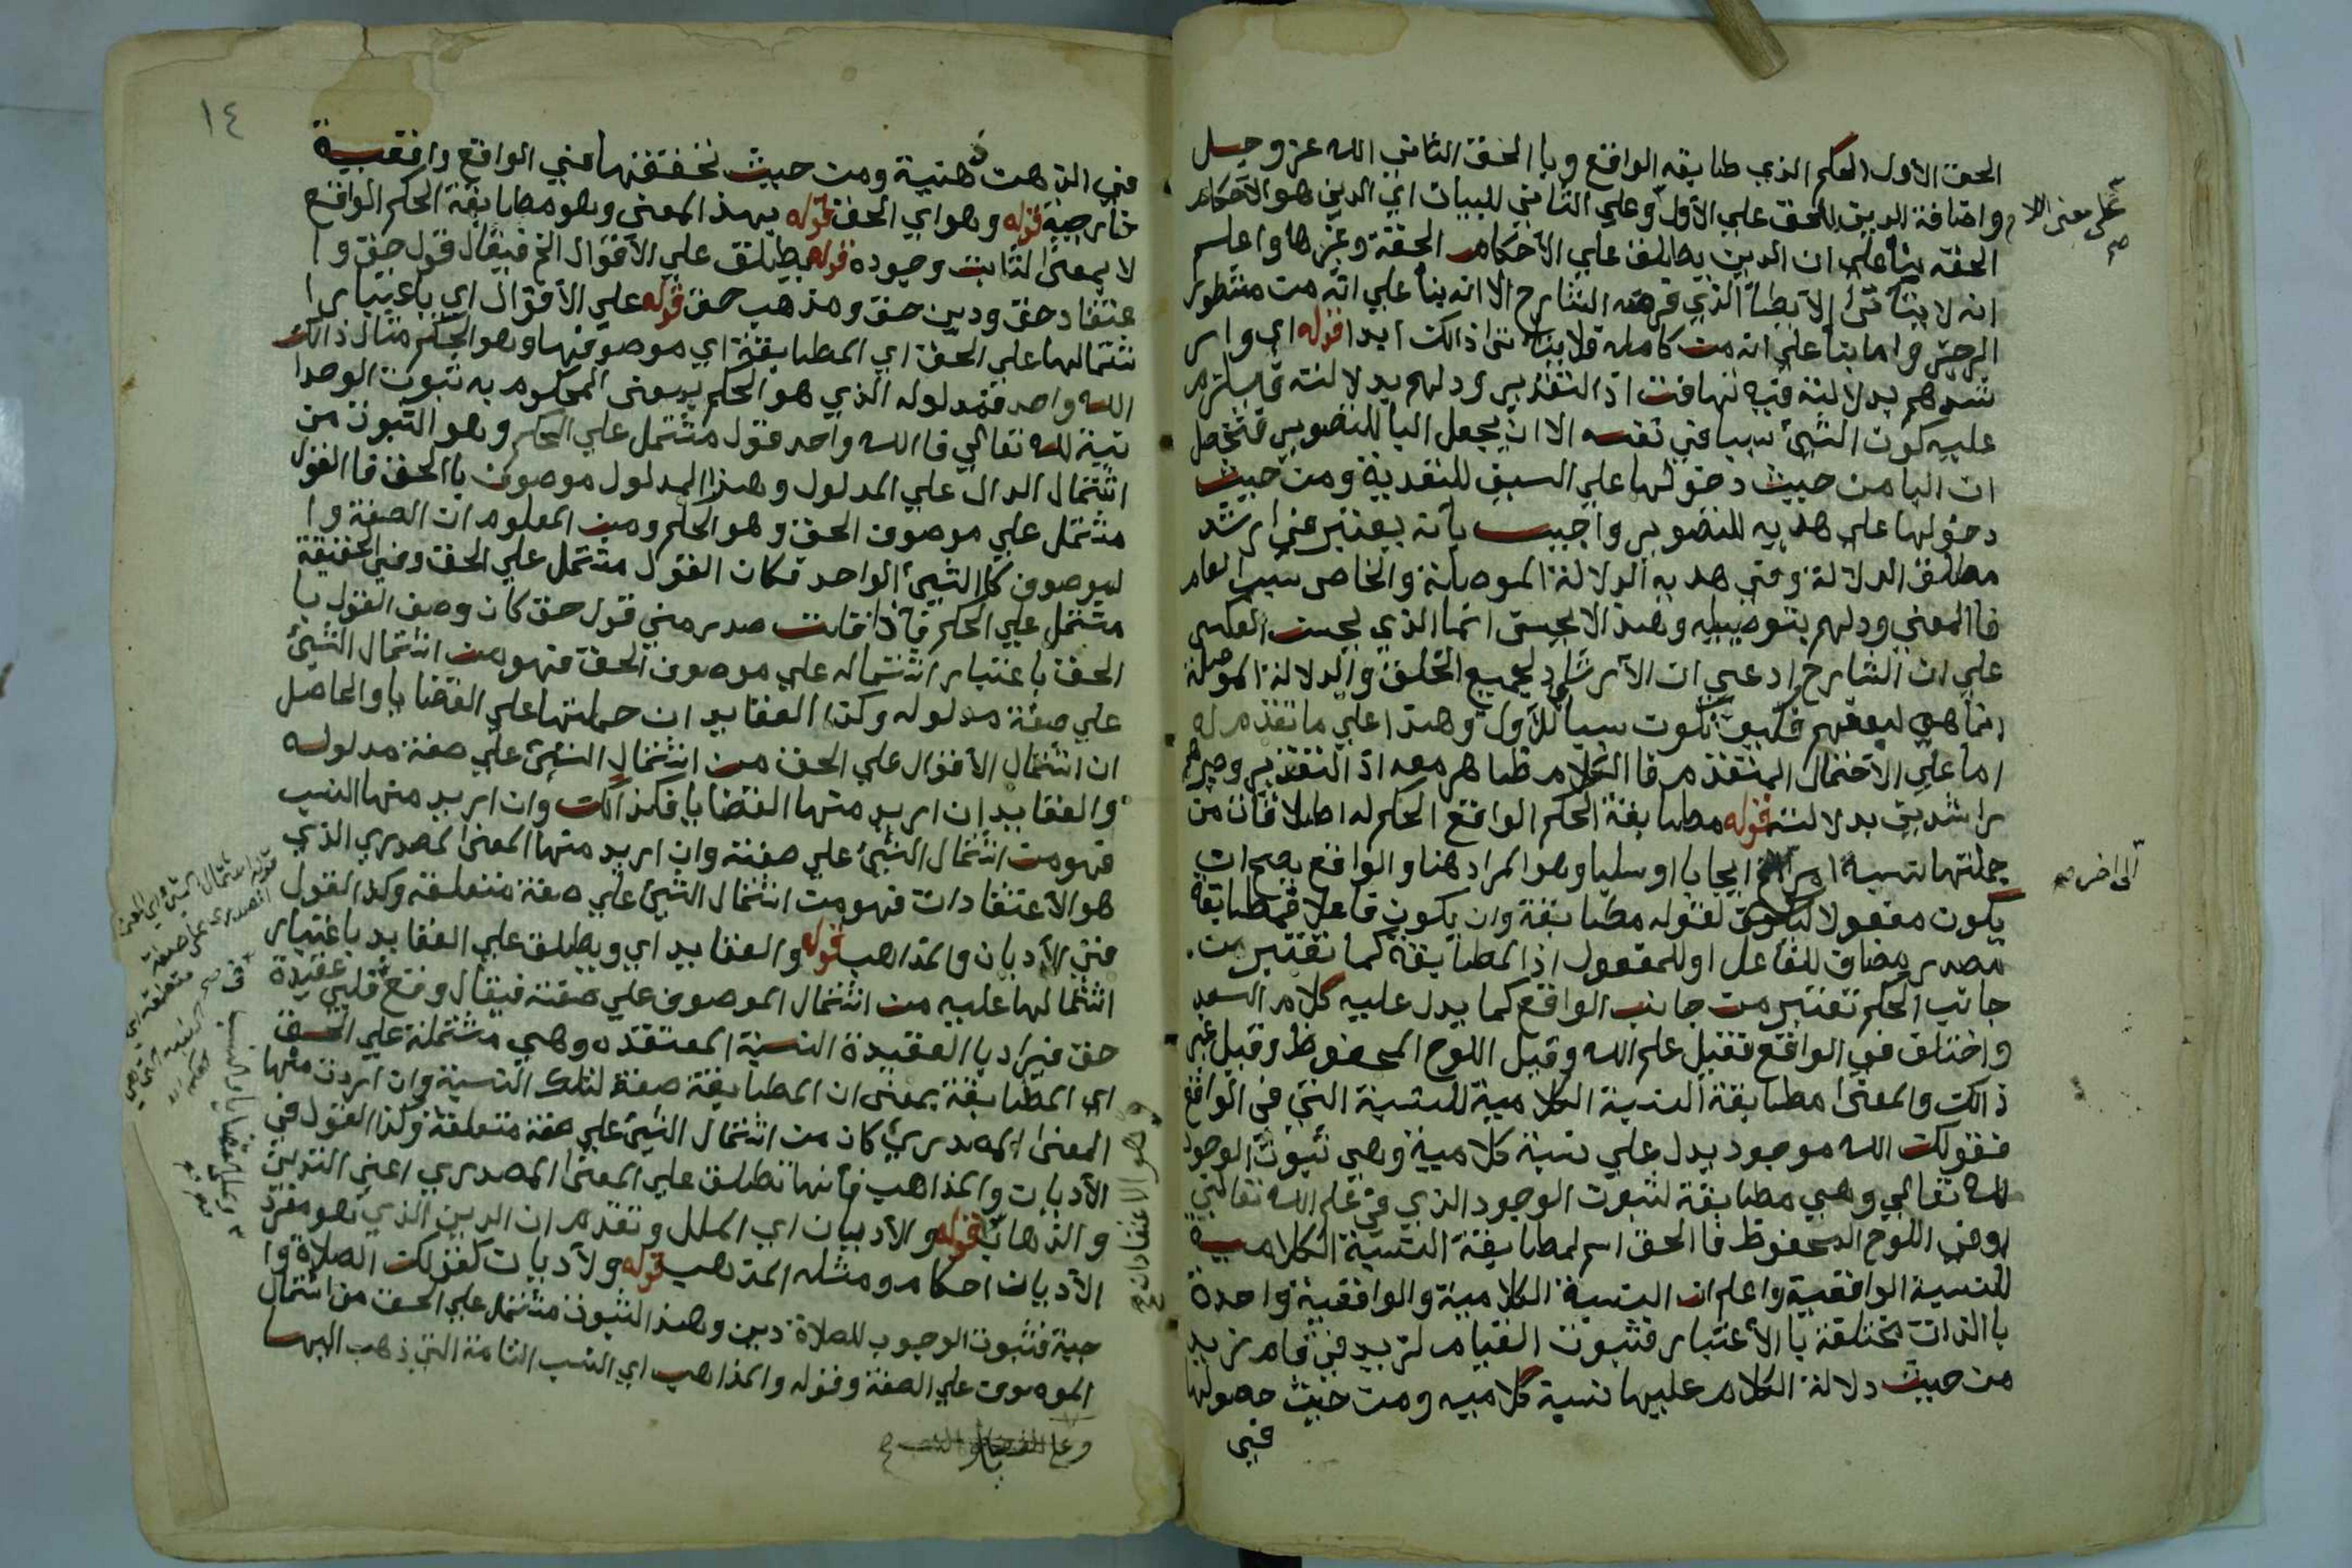 الحق الأول الحكم الذي طابقه الواقع وبا الحق الثاني الله عز وجل
واضافة الدين للحق علي الأول وعلي الثاني للبيان اي الدين هو الأحكام
على معنى اللام صح
الحقه بناً علي ان الدين يطلق علي الأحكام الحقة وغيرها واعلم
انه لا يتأتى الا بطاً الذي قرره الشارح الا انه بناً علي انه من منظور
الرجز واما بناً علي انه من كامله فلا يتاتى ذالك ابدا قوله اي وار
شدهم بدلالته فيه تهافت اذ التقدير ودلهم بدلالته فيلزم
عليه كون الشيئ سببا في نفسه الا ان يجعل البا للتصوير فتحصل
ان البا من حيث دخولها علي السيف للتعدية ومن حيث
دخولها علي هديه للتصوير واجيب بانه يعتبر في ارشد
مطلق الدلالة وفي هديه الدلالة الموصلة والخاص سبب لعام
فا المعني ودلهم بتوصيله وهذا لا يحسن انما الذي يحسن العكس
علي ان الشارح ادعي ان الأرشاد لجميع الخلق والدلالة الموصلة
انما هي لبعضهم فكيف تكون سبباً للأول وهذا علي ما تقدم له
اما علي الأحتمال المتقدم فا الكلام ظاهر معه اذ التقدير وصيرهم
راشدين بدلالته قوله مطابقة الحكم الواقع الحكم له اطلاقات من
جملتها نسبة امر الخ ايجابا او سلبا وهو المراد هنا والواقع يصح ان
الى اخر صح
يكون مفعولا لقوله مطابقة وان يكون فاعلا فمطابقة
مصدر مضاف للفاعل او للمفعول اذ المطابقة كما تعتبر من
جانب الحكم تعتبر من جانب الواقع كما يدل عليه كلام السعد
واختلف في الواقع فقيل علم الله وقيل اللوح المحفوظ وقيل غير
ذالك والمعنى مطابقة النسبة الكلامية للنسبة التي في الواقع
فقولك الله موجود يدل علي نسبة كلامية وهي ثبوت الوجود
لله تعالي وهي مطابقة لثبوت الوجود الذي في علم الله تعالي
او في اللوح المحفوظ فا الحق اسم لمطابقة النسبة الكلامية
للنسبة الواقعية واعلم ان النسبة الكلامية والواقعية واحدة
با الذات مختلفة با الأعتبار فثبوت القيام لزيد في قام زيد
من حيث دلالة الكلام عليها نسبة كلاميه ومن حيث حصولها
في
١٤
في الذهن ذهنية ومن حيث تحققها في الواقع واقعية
خارجية قوله وهو اي الحق قوله بهذ المعنى وهو مطابقة الحكم الواقع
لا بمعنى الثابت وجوده قوله يطلق علي الأقوال الخ فيقال قول حق وا
عتقاد حق ودين حق ومذهب حق قوله علي الأقوال اي باعتبار ا
شتمالها علي الحق اي المطابقة اي موصوفها وهو الحكم مثال ذالك
الله واحد فمدلوله الذي هو الحكم بمعنى المحكوم به ثبوت الوحدا
نية لله تعالي فا الله واحد قول مشتمل علي الحكم وهو الثبوت من
اشتمال الدال علي المدلول وهذا المدلول موصوف با الحق فا القول
مشتمل علي موصوف الحق وهو الحكم ومن المعلوم ان الصفة وا
لموصوف كا الشيئ الواحد فكان القول مشتمل علي الحق وفي الحقيقة
مشتمل علي الحكم فاذا قلت صدر مني قول حق كان وصف القول با
الحق باعتبار اشتماله علي موصوف الحق فهو من اشتمال الشيئ
علي صفة مدلوله وكذا العقايد ان حملتها علي القضايا والحاصل
ان اشتمال الأقوال علي الحق من اشتمال الشيئ علي صفة مدلوله
والعقايد ان اريد منها القضايا فكذالك وان اريد منها النسب
فهو من اشتمال الشيئ علي صفته وان اريد منها المعنى المصدري الذي
هو الأعتقادات فهو من اشتمال الشيئ علي صفة متعلقه وكذا القول
في الأديان والمذاهب قوله والعقايد اي ويطلق علي العقايد باعتبار
اشتمالها عليه من اشتمال الموصوف علي صفته فيقال وقع في قلبي عقيدة
حق فيراد با العقيدة النسبة المعتقده وهي مشتملة علي الحق
اي المطابقة بمعنى ان المطابقة صفة لتلك النسبة وان اردت منها
المعنى المصدري كان من اشتمال الشيئ علي صفة متعلقة وكذا القول في
الأديان والمذاهب فأنها تطلق علي المعنى المصدري اعني التدين
والذهاب قوله والأديان اي الملل وتقدم ان الدين الذي هو مفرد
الأديان احكام ومثله المذهب قوله ولأديان كقولك الصلاة وا
جبة فثبوت الوجوب للصلاة دين وهذا الثبوت مشتمل علي الحق من اشتمال
الموصوف علي الصفة وقوله والمذاهب اي النسب التامة التي ذهب اليها
وهو الاعتقادات صح